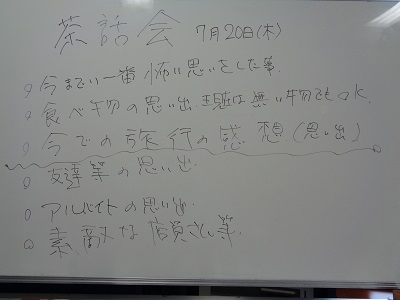 茶話会 7月20日(木)
今まで一番怖い思いをした事.
食べ物の思い出. は無い物でもOK.
今での旅行の感想(思い出)
友達等の思い出.
アルバイトの思い出.
素敵な店員さん等.